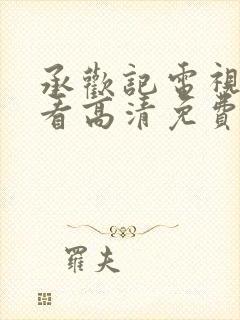 承歡記電視
看高清免費
羅夫